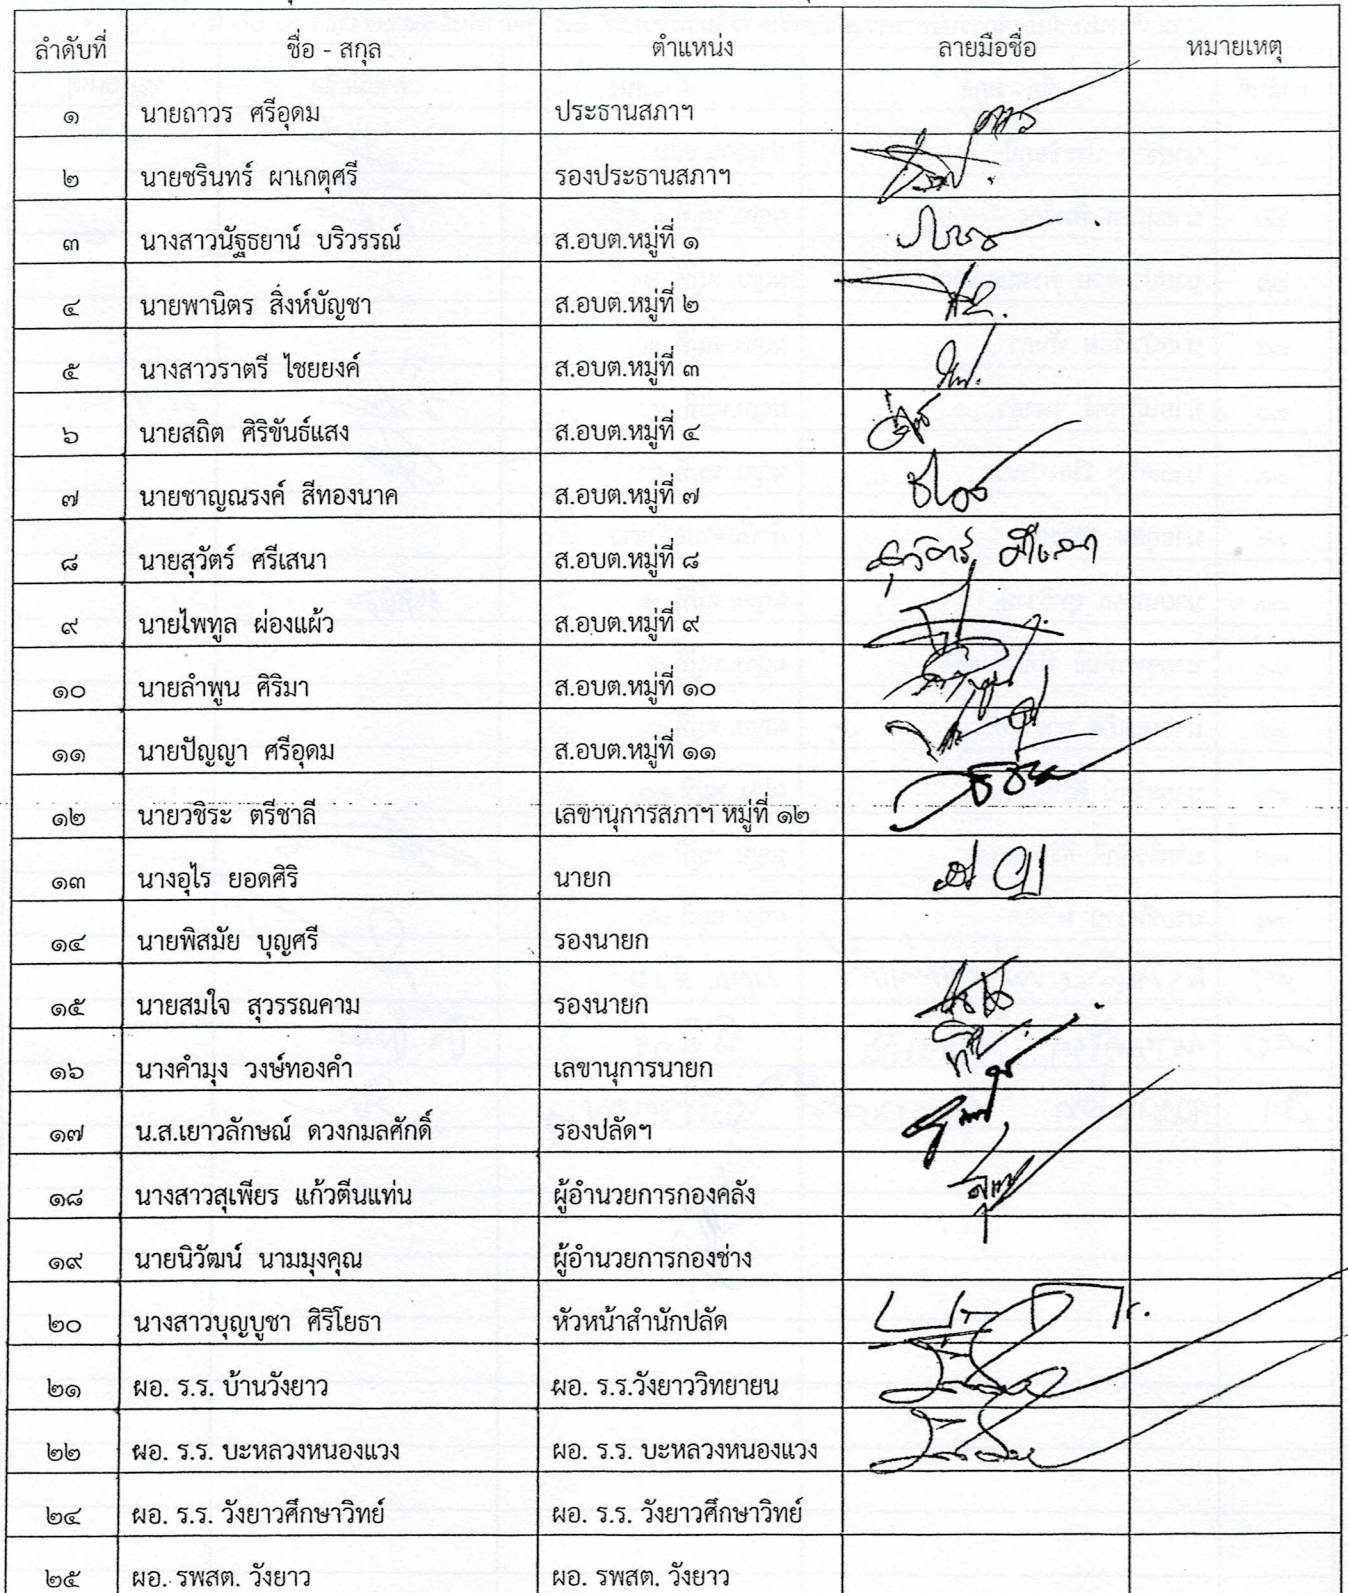 ลำดับที่ ชื่อ - สกุล ตำแหน่ง ลายมือชื่อ หมายเหตุ
๑ นายถาวร ศรีอุดม ประธานสภาฯ
๒ นายชรินทร์ ผาเกตุศรี รองประธานสภาฯ
๓ นางสาวนัฐธยาน์ บริวรรณ์ ส.อบต.หมู่ที่ ๑
๔ นายพานิตร สิ่งห์บัญชา ส.อบต.หมู่ที่ ๒
๕ นางสาวราตรี ไชยยงค์ ส.อบต.หมู่ที่ ๓
๖ นายสถิต ศิริขันธ์แสง ส.อบต.หมู่ที่ ๔
๗ นายชาญณรงค์ สีทองนาค ส.อบต.หมู่ที่ ๗
๘ นายสุวัตร์ ศรีเสนา ส.อบต.หมู่ที่ ๘ สุวัตร์ ศรีเสนา
๙ นายไพทูล ผ่องแผ้ว ส.อบต.หมู่ที่ ๙
๑๐ นายลำพูน ศิริมา ส.อบต.หมู่ที่ ๑๐
๑๑ นายปัญญา ศรีอุดม ส.อบต.หมู่ที่ ๑๑
๑๒ นายวชิระ ตรีชาลี เลขานุการสภาฯ หมู่ที่ ๑๒
๑๓ นางอุไร ยอดศิริ นายก
๑๔ นายพิสมัย บุญศรี รองนายก
๑๕ นายสมใจ สุวรรณคาม รองนายก
๑๖ นางคำมุง วงษ์ทองคำ เลขานุการนายก
๑๗ น.ส.เยาวลักษณ์ ดวงกมลศักดิ์ รองปลัดฯ
๑๘ นางสาวสุเพียร แก้วตีนแท่น ผู้อำนวยการกองคลัง
๑๙ นายนิวัฒน์ นามมุงคุณ ผู้อำนวยการกองช่าง
๒๐ นางสาวบุญบูชา ศิริโยธา หัวหน้าสำนักปลัด
๒๑ ผอ. ร.ร. บ้านวังยาว ผอ. ร.ร.วังยาววิทยายน
๒๒ ผอ. ร.ร. บะหลวงหนองแวง ผอ. ร.ร. บะหลวงหนองแวง
๒๔ ผอ. ร.ร. วังยาวศึกษาวิทย์ ผอ. ร.ร. วังยาวศึกษาวิทย์
๒๕ ผอ. รพสต. วังยาว ผอ. รพสต. วังยาว